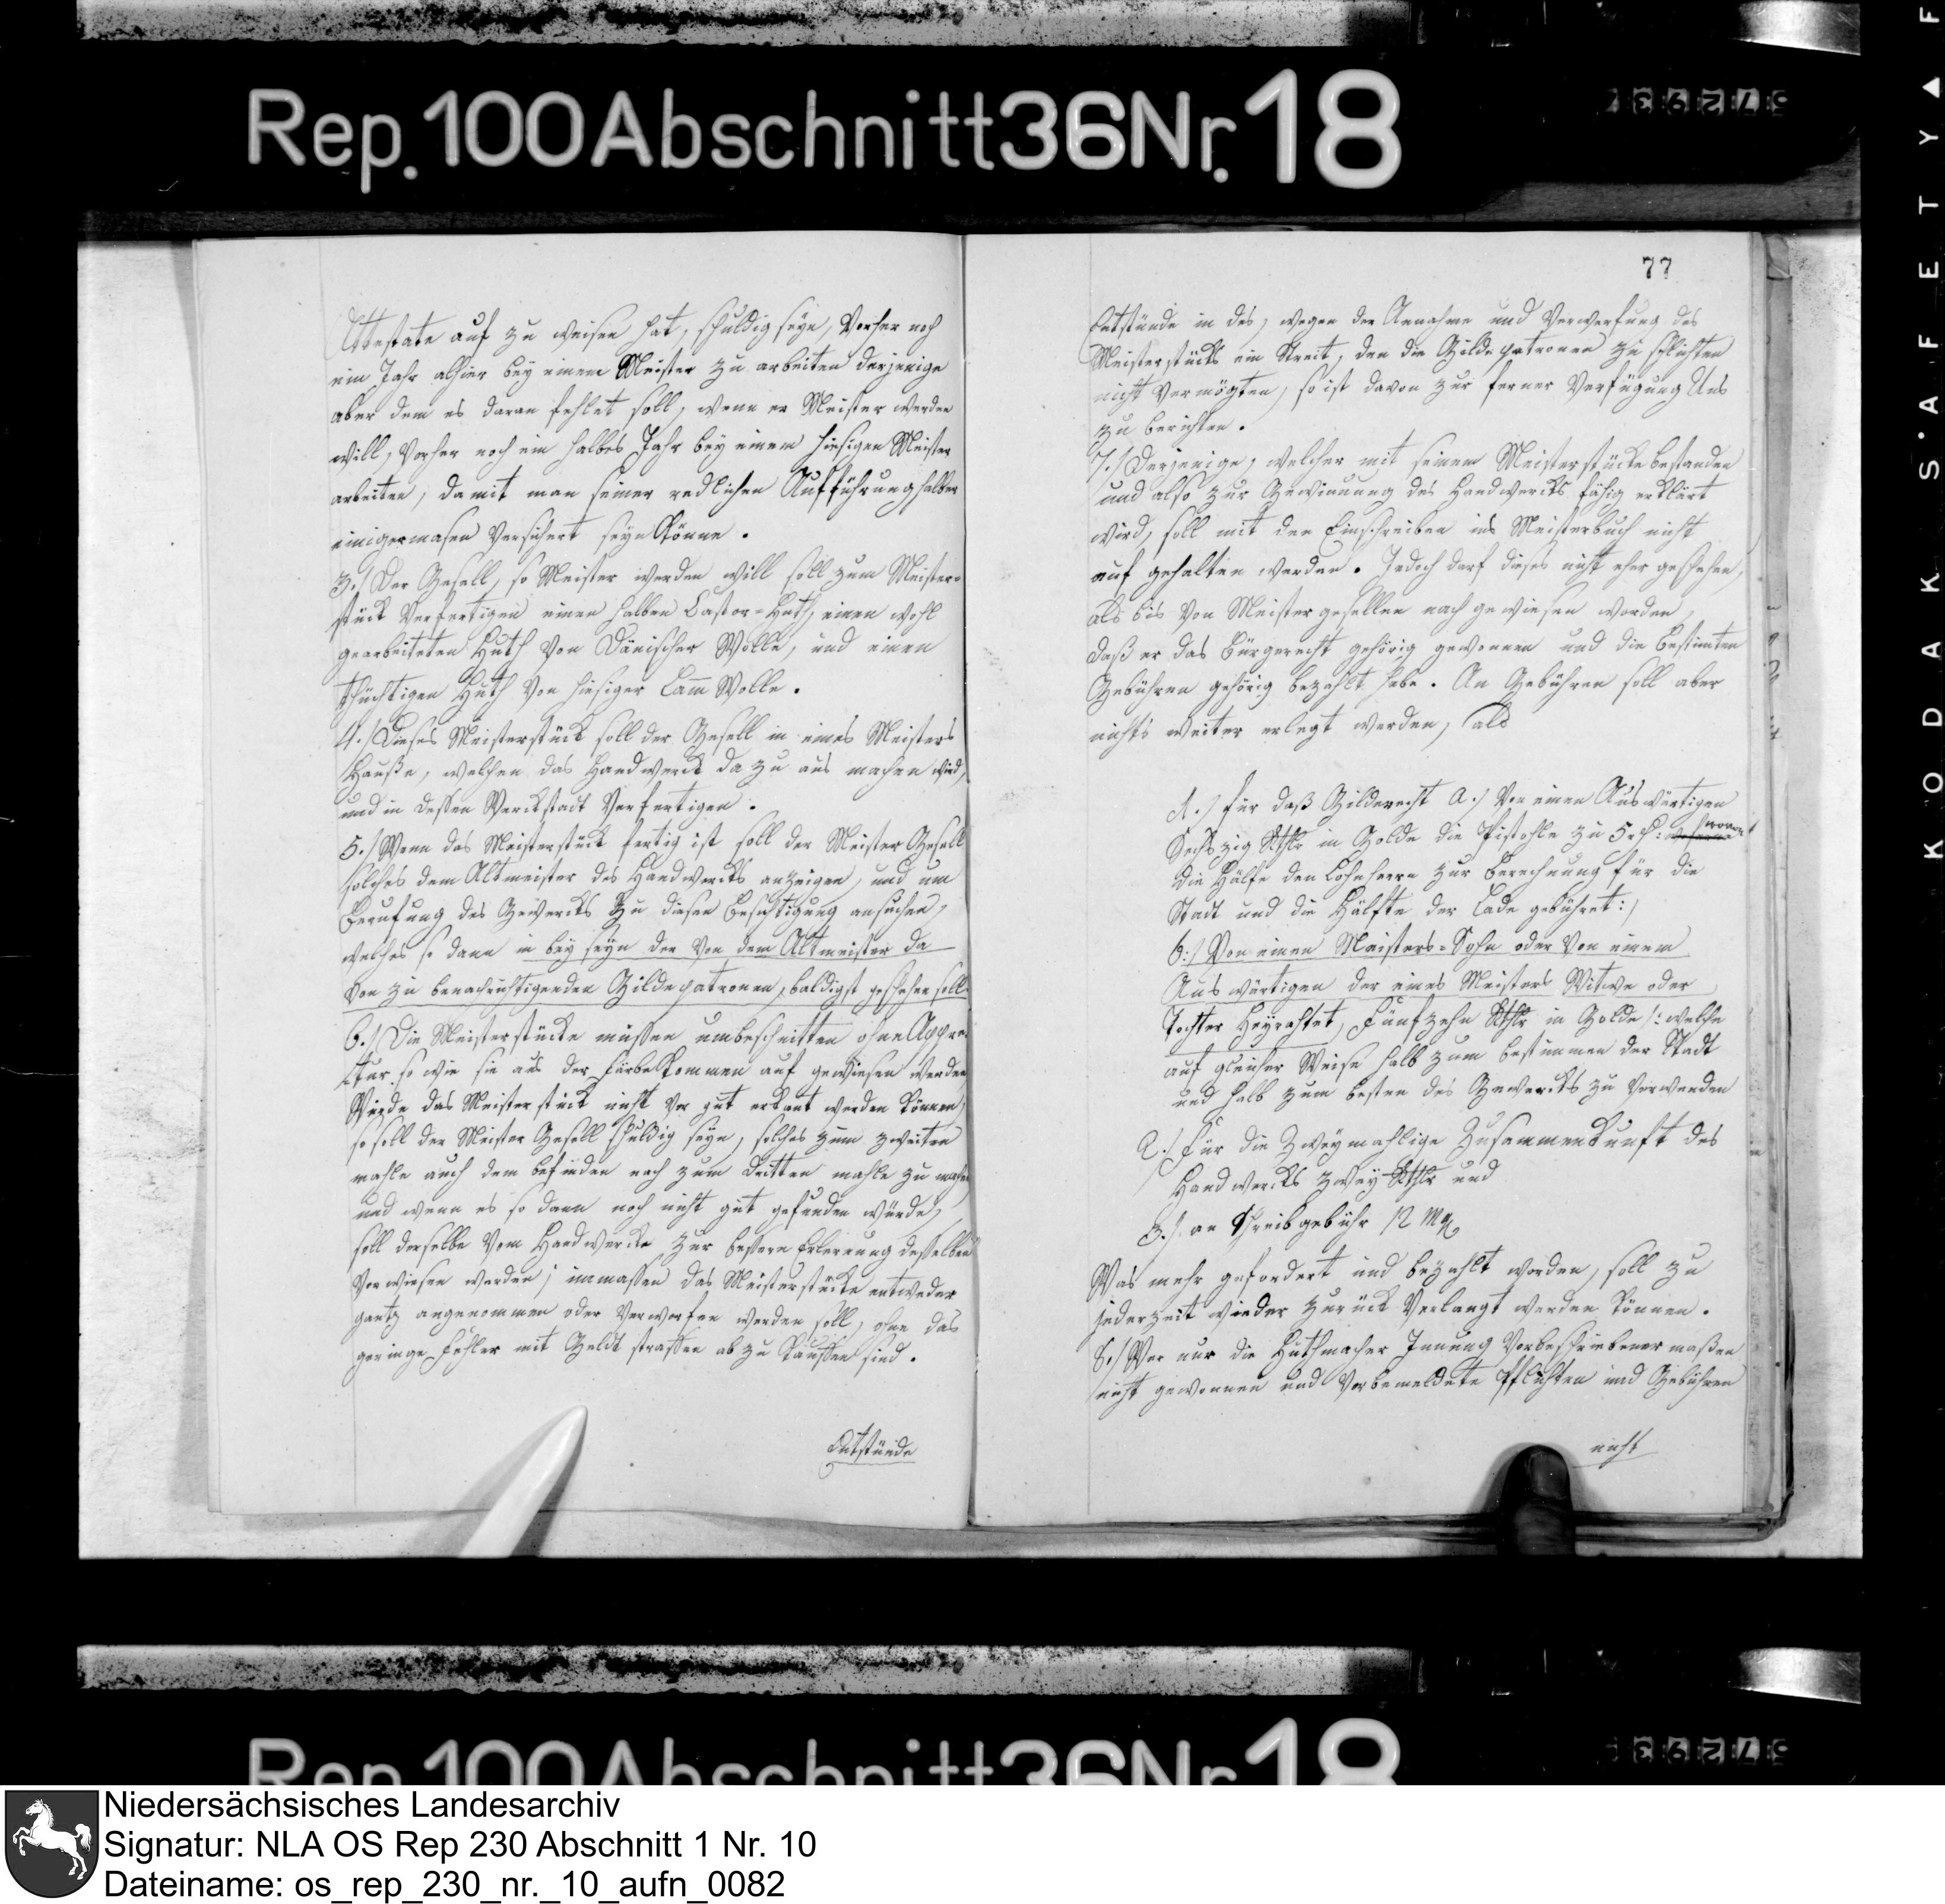 Rep. 100 Abschnitt 36 Nr. 18
Attestate auf zu weisen hat, schuldig seyn, Vorher noch
ein Jahr alhier bey einem Meister zu arbeiten derjenige
aber dem es daran fehlet soll, wenn er Meister werden
will, Vorher noch ein halbes Jahr bey einem hiesigen Meister
arbeiten, damit man seiner redlichen Aufführung halber
einigermasen Versichert seyn Könne.
3./ Der Gesell, so Meister werden will soll zum Meister=
stück Verfertigen einen halben Castor=Huth, einen wohl
gearbeiteten Huth Von Dänischer Wolle, und einen
thüchtigen Huth Von hiesiger Lam̄ Wolle.
4./ Dieses Meisterstück soll der Gesell in eines Meisters
Hauße, welchen das Handwerck da zu aus machen wird,
und in dessen Werckstadt Verfertigen.
5./ Wenn das Meisterstück fertig ist soll der Meister Gesell
solches dem Altmeister des Handwercks anzeigen, und um
Berufung des Gewercks zu diesen Besichtigung ansuchen,
welches so dann in bey seyn der Von dem Altmeister da
Von zu benachrichtigenden Gildepatronen, baldigst geschehen soll.
6./ Die Meisterstücke müssen umbeschnitten ohne Appre=
tur so wie sie aus der Farbe Kommen auf gewiesen werden
Würde das Meisterstück nicht Vor gut erkant werden können,
so soll der Meister Gesell schuldig seyn, solches zum zweiten
mahle auch dem befinden nach zum dritten mahle zu machen
und wenn es so dann noch nicht gut gefunden würde,
soll derselbe Vom Handwercke zur bessern Erlernung desselben
Verwiesen werden; inmassen das Meisterstücke entweder
gantz angenommen oder Verworfen werden soll, ohne das
geringe Fehler mit Geldt straffen ab zu Kauffen sind.
Entstünde
77
Entstünde in des, wegen der Annahme und Verwerfung des
Meisterstücks ein Streit, den die Gildepatronen zu schlichten
nicht Vermögten, so ist davon zur ferner Verfügung Uns
zu berichten.
7./ Derjenige, welcher mit seinem Meisterstücke bestanden
und also zur Gewinnung des Handwercks fähig erklärt
wird, soll mit den Einschreiben ins Meisterbuch nicht
auf gehalten werden. Jedoch darf dieses nicht eher geschehen,
als bis Von Meistergesellen nach gewiesen worden,
daß er das Bürgerrecht gehörig gewonnen und die bestimten
Gebühren gehörig bezahlt habe. An Gebühren soll aber
nichts weiter erlegt werden, als
1./ für daß Gilderecht a./ Von einen Auswärtigen
Sechszig Rthlr in Golde die Pistohle zu 5 rf: wovon
die Hälfe den Lohnherrn zur Berechnung für die
Stadt und die Hälfte der Lade gebühret:/
b:/ Von einen Meisters=Sohn oder Von einem
Auswärtigen der eines Meisters Witwe oder
Tochter Heyrathet, Fünfzehn Rthlr in Golde /: welche
auf gleicher Weise halb zum bestimmen der Stadt
und halb zum besten des Gewercks zu Verwenden
2./ Für die Zweymahlige Zusammenkunft des
Handwercks zwey Rthlr und
3./ an Schreibgebühr 12 Mg
Was mehr gefordert und bezahlt worden, soll zu
jederzeit wieder zurück Verlangt werden können.
8./ Wer nur die Huthmacher Innung Vorbeschriebener maßen
nicht gewonnen und Vorbemeldete Pflichten und Gebühren
nicht
KODAK S.AFETY▲F
Rep. 100 Abschnitt 36 Nr. 18
Niedersächsisches Landesarchiv
Signatur: NLA OS Rep 230 Abschnitt 1 Nr. 10
Dateiname: os_rep_230_nr._10_aufn_0082